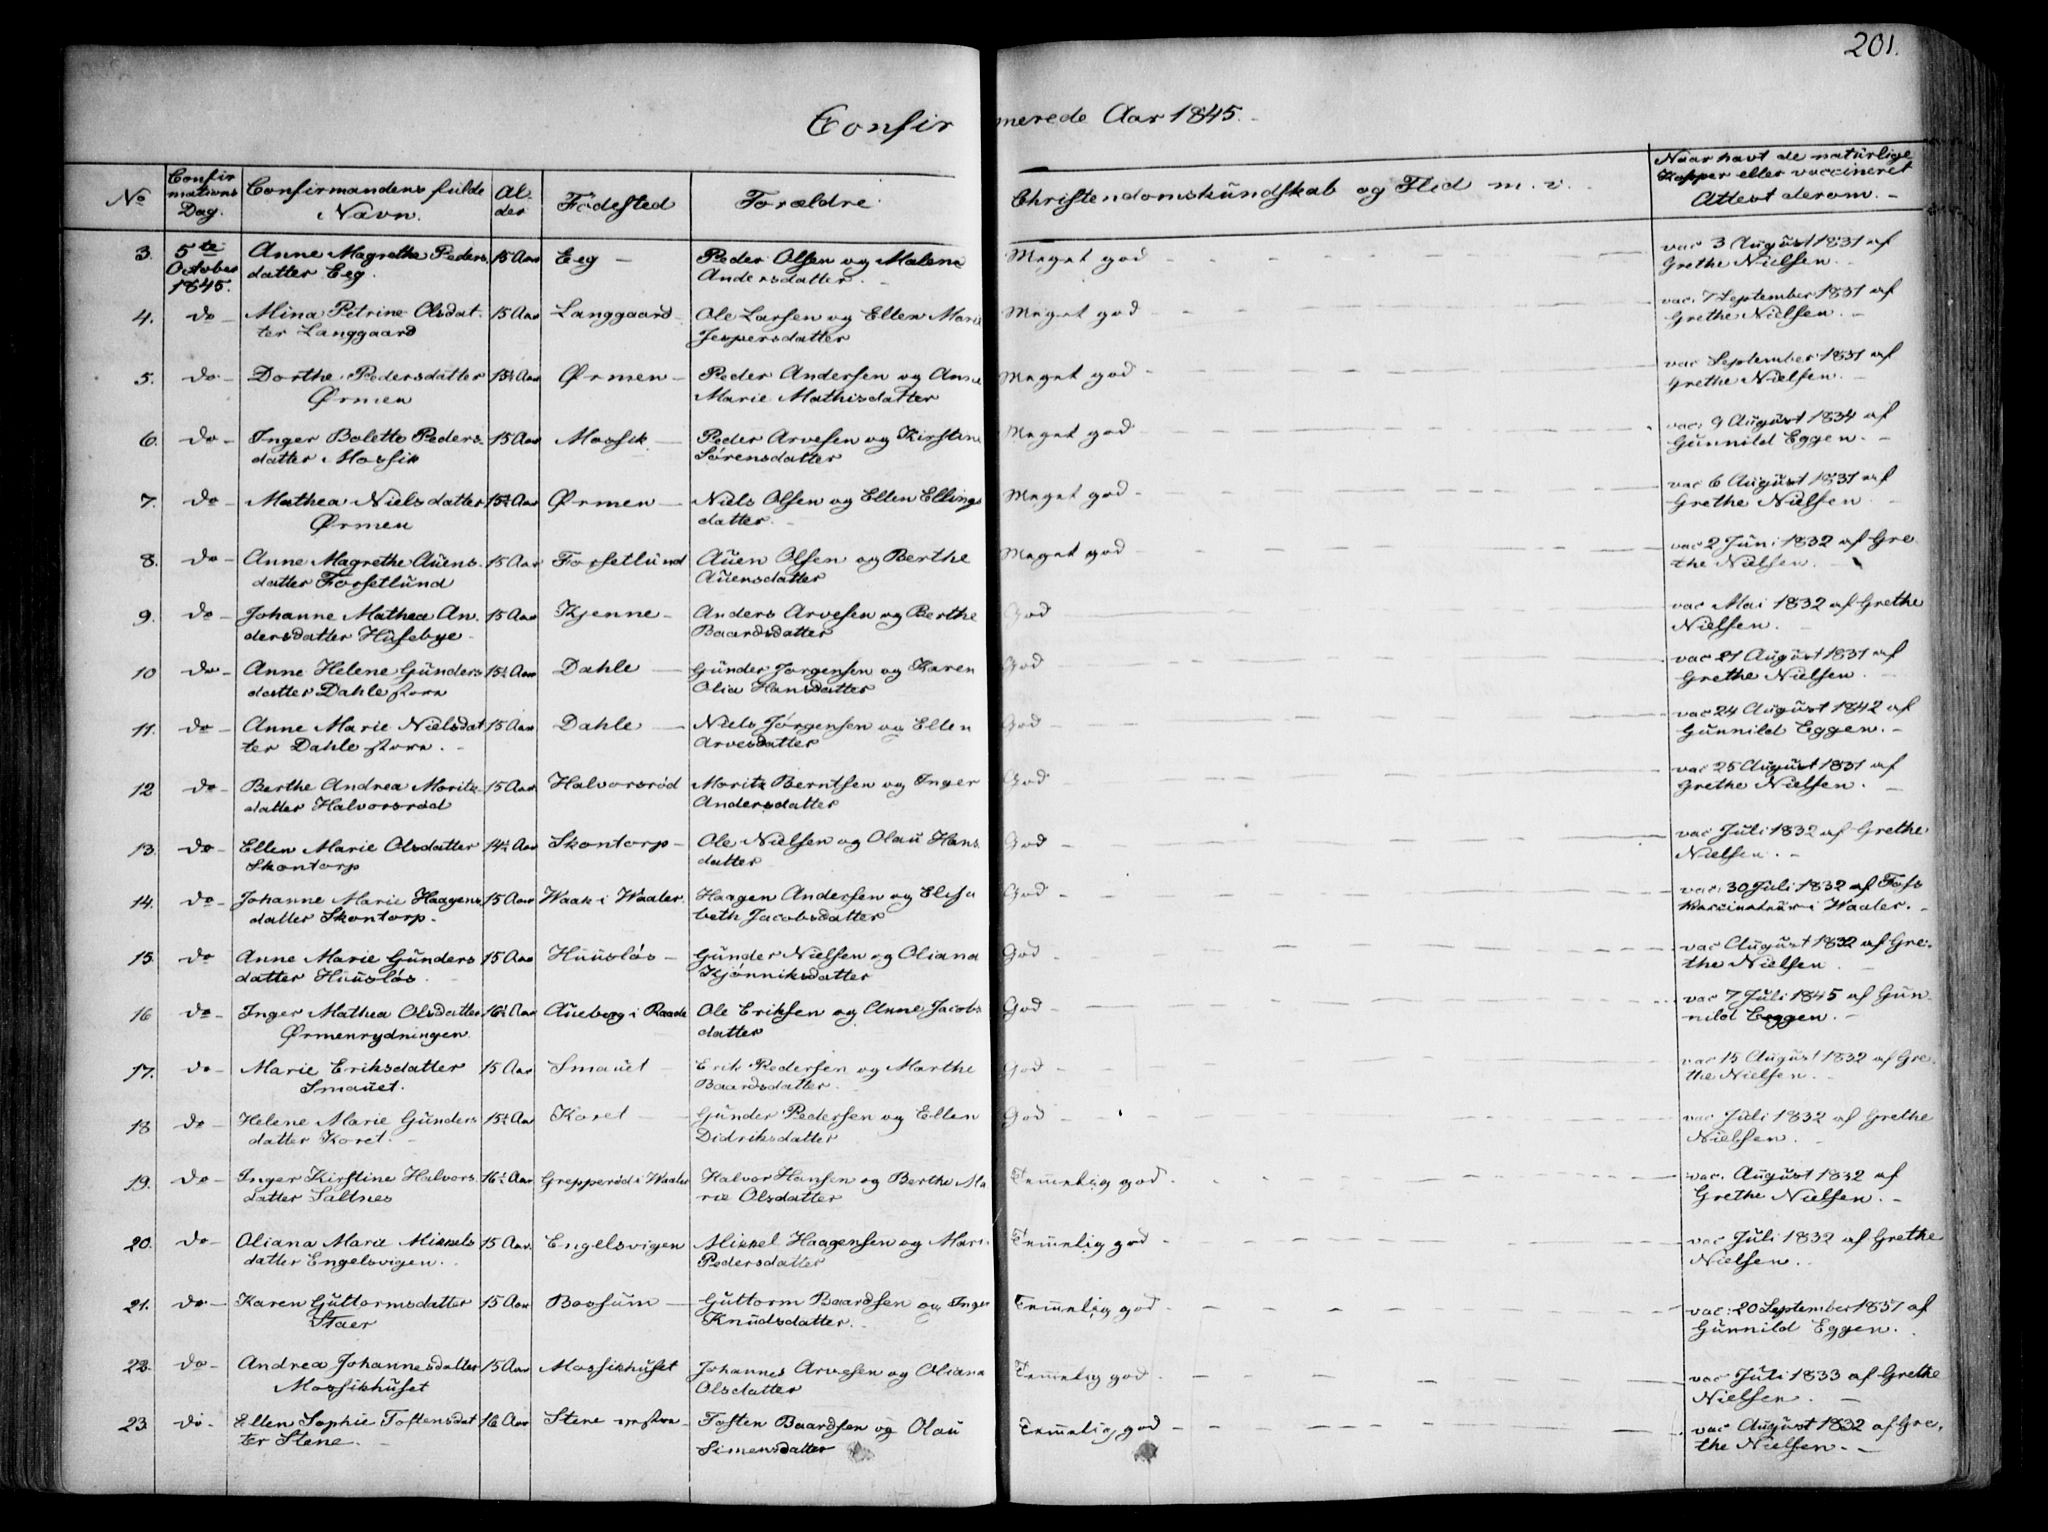 201.
Confirmerede Aar 1845.
No | Confirmations Dag. | Confirmandens fulde Navn. | Alder | Födested | Forældre | Christendomskündskab og Flid m. v. | Naar havt de natürlige Kopper eller vaccineret Attest derom.
3. | 5te October 1845. | Anne Magrethe Pedersdatter Eeg. | 15 Aar | Eeg | Peder Olsen og Malene Andersdatter. | Meget god | vac 3 Augüst 1831 af Grethe Nielsen.
4. | do | Mina Petrine Olsdatter Langgaard | 15 Aar | Langgaard | Ole Larsen og Ellen Marie Jespersdatter | Meget god | vac. 7 September 1831 af Grethe Nielsen.
5. | do | Dorthe Pedersdatter Ørmen | Aar | Ørmen | Peder Andersen og Anne Marie Mathisdatter | Meget god | vac September 1831 af Grethe Nielsen.
6. | do | Inger Bolette Pedersdatter Mossik | 15 Aar | Mossik | Peder Arvesen og Kirstine Sörensdatter | Meget god | vac. 9 Augüst 1834 af Günnild Eggen.
7. | do | Mathea Nielsdatter Ørmen | Aar | Ørmen | Niels Olsen og Ellen Ellingsdatter. | Meget god | vac 6 Augüst 1831 af Grethe Nielsen
8. | do | Anne Magrethe Aüensdatter Forsetlünd | 15 Aar | Forsetlünd | Aüen Olsen og Berthe Aüensdatter | Meget god | vac 2 Jüni 1832 af Grethe Nielsen.
9. | do | Johanne Mathea Andersdatter Hüsebye | 15 Aar | Kjenne | Anders Arvesen og Berthe Baardsdatter | God | vac Mai 1832 af Grethe Nielsen.
10 | do | Anne Helene Gündersdatter Dahle store | Aar | Dahle | Günder Jorgensen og Karen Olia Hansdatter | God | vac 21 Augüst 1831 af Grethe Nielsen.
11. | do | Anne Marie Nielsdatter Dahle store. | 15 Aar | Dahle | Niels Jörgensen og Ellen Arvesdatter | God | vac 24 Augüst 1842 af Günnild Eggen.
12 | do | Berthe Andrea Moritzdatter Halvorsröd | 15 Aar | Halvorsröd | Moritz Berntsen og Inger Andersdatter | God | vac 25 Augüst 1831 af Grethe Nielsen.
13. | do | Ellen Marie Olsdatter Skontorp | Aar | Skontorp | Ole Nielsen og Olaü Hansdatter | God | vac Jüli 1832 af Grethe Nielsen.
14. | do | Johanne Marie Haagensdatter Skontorp. | 15 Aar | i Waaler. | Haagen Andersen og Elisabeth Jacobsdatter | God | vac: 30 Jüli 1832 af Foss Vaccinateür i Waaler.
15. | do | Anne Marie Gündersdatter Hüüslös | 15 Aar | Hüüslös | Günder Nielsen og Oliana Kjönniksdatter | God | vac Augüst 1832 af Grethe Nielsen.
16 | do | Inger Mathea Olsdatter Ørmenrydningen | Aar | Aüeberg i Raade | Ole Eriksen og Anne Jacobsdatter | God | vac. 7 Jüli 1845 af Günnild Eggen.
17. | do | Marie Eriksdatter Smaüet. | 15 Aar | Smaüet | Erik Pedersen og Marthe Baardsdatter. | God | vac 15 Augüst 1832 af Grethe Nielsen.
18 | do | Helene Marie Gündersdatter Koret. | Aar | Koret | Günder Pedersen og Ellen Didriksdatter | God | vac Jüli 1832 af Grethe Nielsen.
19. | do | Inger Kirstine Halvorsdatter Saltnes | Aar | Grepperöd i Waaler | Halvor Hansen og Berthe Marie Olsdatter | Temmelig god | vac. Augüst 1832 af Grethe Nielsen.
20. | do | Oliana Marie Mikkelsdatter Engelsvigen. | 15 Aar. | Engelsvigen | Mikkel Haagensen og Mari Pedersdatter | Temmelig god | vac Jüli 1832 af Grethe Nielsen.
21. | do | Karen Güttormsdatter Staer | 15 Aar | Bossüm | Güttorm Baardsen og Inger Knüdsdatter. | Temmelig god | vac: 20 September 1831 af Günnild Eggen.
22. | do | Andrea Johannesdatter Mossikhüset | 15 Aar | Mossikhüset | Johannes Arvesen og Oliana Olsdatter | Temmelig god | vac Jüli 1833 af Grethe Nielsen.
23. | do | Ellen Sophie Tostensdatter Stene. | 16 Aar | Stene | Tosten Baardsen og Olaü Simensdatter | Temmelig god | vac Augüst 1832 af Grethe Nielsen.